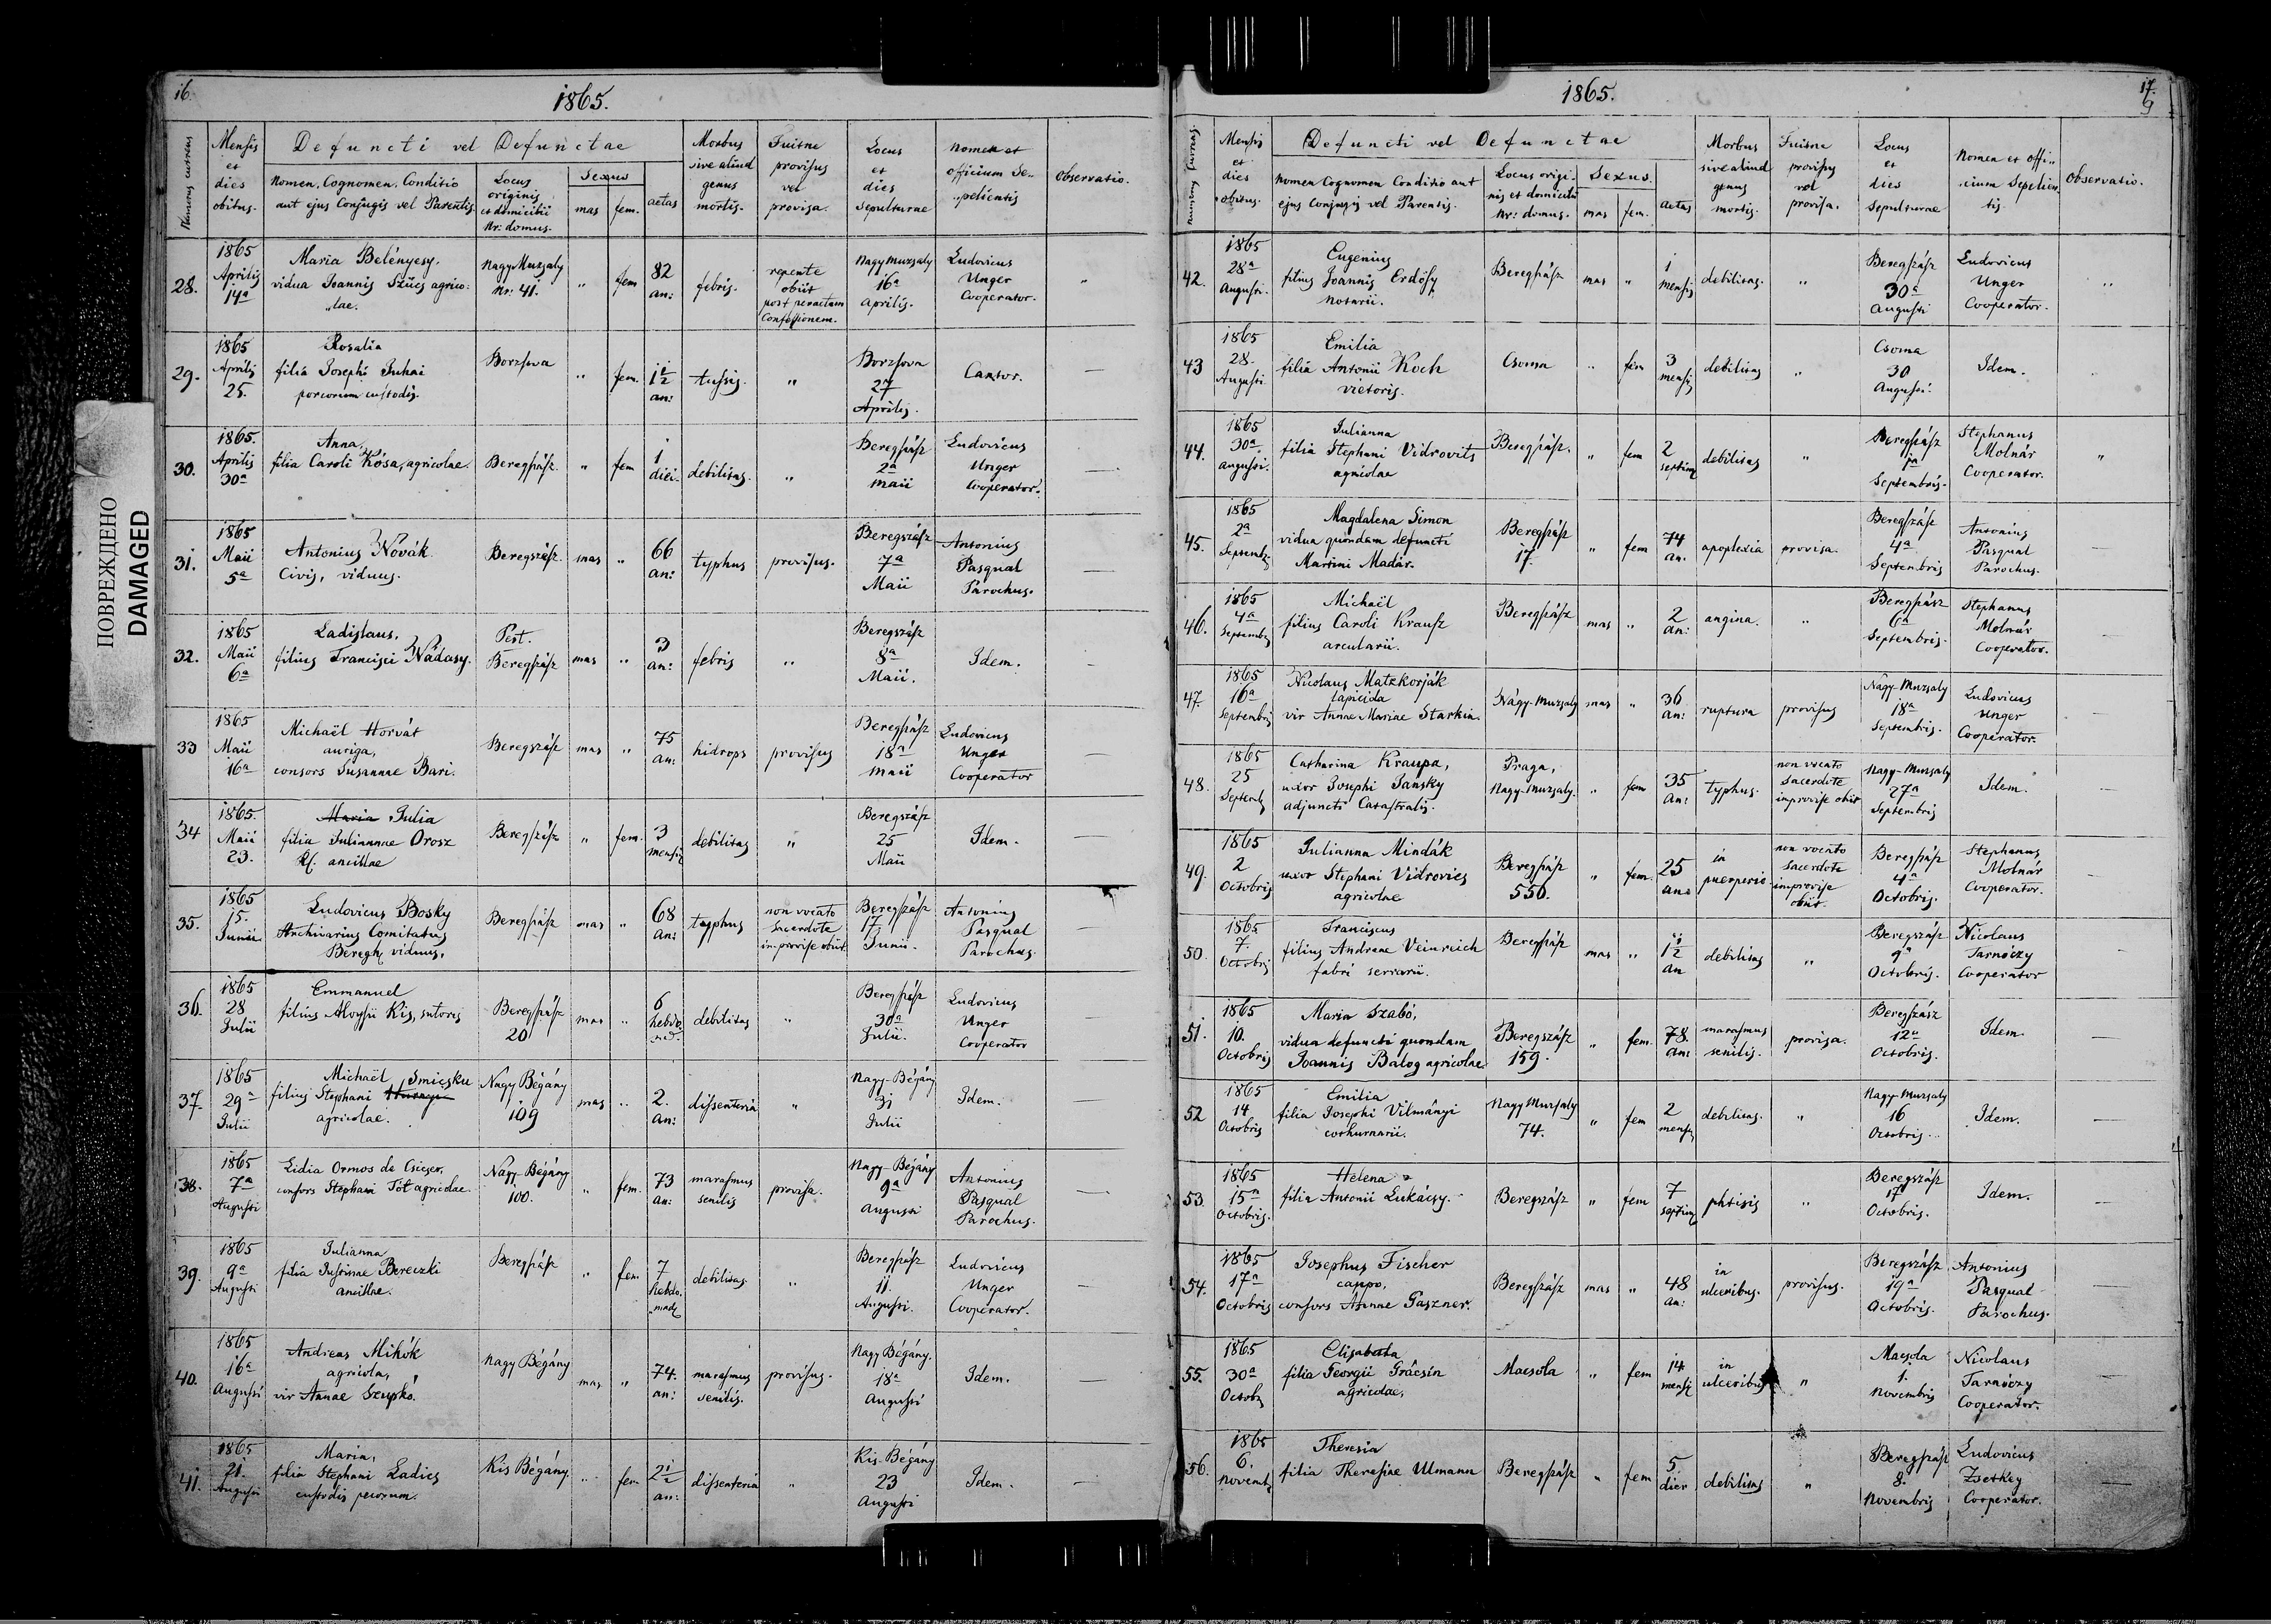 16.
1865.
Numerus currens
Mensis et dies obitus.
Defuncti vel Defunctae
Nomen, Cognomen, Conditio aut ejus Conjugis vel Parentis.
Locus originis et domicilii Nr: domus.
Sexus
mas
fem.
aetas
Morbus sive aliud genus mortis.
Fuitne provisus vel provisa.
Locus et dies Sepulturae
Nomen et officium Sepelientis
Observatio.
28. 1865 Aprilis 14a Maria Belényesy, vidua Joannis Szűcs agricolae. Nagy Muzsaly Nr: 41. " fem 82 an: febris. repente obiit post peractam Confessionem. Nagy Muzsaly 16a Aprilis. Ludovicus Unger Cooperator. "
29. 1865 Aprilis 25. Rosalia filia Josephi Juhai porcorum custodis. Borzsova " fem. 1 1/2 an: tussis. " Borzsova 27 Aprilis. Cantor. —
30. 1865. Aprilis 30a Anna, filia Caroli Kósa, agricolae. Beregszász. " fem 1 diei. debilitas. " Beregszász 2a Maii Ludovicus Unger Cooperator. —
31. 1865 Maii 5a Antonius Novák Civis, viduus. Beregszász. mas " 66 an: typhus provisus. Beregszász 7a Maii Antonius Pasqual Parochus. —
32. 1865 Maii 6a Ladislaus, filius Francisci Nádasy. Pest. Beregszász mas " 3 an: febris " Beregszász 8a Maii. Idem. —
33 1865 Maii 16a Michaël Horvát auriga, consors Susannae Bari. Beregszász mas " 75 an: hidrops provisus Beregszász 18a Maii Ludovicus Unger Cooperator —
34 1865. Maii 23. Maria Julia filia Juliannae Orosz Rf. ancillae Beregszász " fem. 3 mensis debilitas " Beregszász 25 Maii Idem. —
35. 1865 15. Junii Ludovicus Bosky Archivarius Comitatus Beregh, viduus. Beregszász mas " 68 an: typhus non vocato Sacerdote improvise obiit Beregszász 17 Junii. Antonius Pasqual Parochus. —
36. 1865 28 Julii Emmanuel filius Aloysii Kis, sutoris Beregszász 20 mas " 6 hebdomad. debilitas " Beregszász 30a Julii. Ludovicus Unger Cooperator —
37. 1865 29a Julii Michaël filius Stephani Smicsku agricolae. Nagy Bégány 109 mas " 2. an: dissenteria " Nagy-Bégány 31 Julii Idem. —
38. 1865 7a Augusti Lidia Ormos de Csicser, consors Stephani Tót agricolae. Nagy-Bégány 100. " fem. 73 an: marasmus senilis provisa. Nagy-Bégány 9a Augusti Antonius Pasqual Parochus. —
39. 1865 9a Augusti Julianna filia Justinae Bereczki ancillae. Beregszász " fem. 7 hebdomad. debilitas. " Beregszász 11. Augusti. Ludovicus Unger Cooperator. —
40. 1865 16a Augusti Andreas Mihók agricola, vir Annae Szupkó. Nagy Bégány mas " 74. an: marasmus senilis. provisus. Nagy Bégány. 18a Augusti Idem. —
41. 1865 21. Augusti Maria, filia Stephani Ladics custodis pecorum. Kis Bégány. " fem 2 1/2 an: dissenteria " Kis-Bégány 23 Augusti Idem. —
ПОВРЕЖДЕНО
DAMAGED
17.
9
1865.
Numerus currens.
Mensis et dies obitus.
Defuncti vel Defunctae
Nomen Cognomen Conditio aut ejus Conjugis vel Parentis.
Locus originis et domicilii Nr: domus.
Sexus.
mas
fem.
aetas
Morbus sive aliud genus mortis.
Fuitne provisus vel provisa.
Locus et dies Sepulturae
Nomen et officium Sepelientis.
Observatio.
42. 1865 28a Augusti. Eugenius filius Joannis Erdősy notarii. Beregszász mas " 1 mensis debilitas. " Beregszász 30a Augusti Ludovicus Unger Cooperator. "
43 1865 28. Augusti Emilia filia Antonii Koch vietoris. Csoma " fem 3 mensis debilitas " Csoma 30 Augusti. Idem.
44. 1865 30a Augusti. Julianna filia Stephani Vidrovits agricolae Beregszász. " fem 2 septim debilitas " Beregszász 1a Septembris. Stephanus Molnár Cooperator. "
45. 1865 2a Septembr. Magdalena Simon vidua quondam defuncti Martini Madár. Beregszász 17. " fem 74 an. apoplexia provisa. Beregszász 4a Septembris Antonius Pasqual Parochus. —
46. 1865 4a Septembr Michaël filius Caroli Krausz arcularii. Beregszász mas " 2 an: angina. " Beregszász 6a Septembris. Stephanus Molnár Cooperator. —
47. 1865 16a Septembris Nicolaus Matzkorják lapicida vir Annae Mariae Starkin. Nagy-Muzsaly mas " 36 an: ruptura provisus Nagy-Muzsaly 18a Septembris. Ludovicus Unger Cooperator. —
48. 1865 25 Septemb Catharina Kraupa, uxor Josephi Jansky adjuncti Catastralis. Praga, Nagy-Muzsaly. " fem 35 an: typhus. non vocato Sacerdote improvise obiit Nagy-Muzsaly 27a Septembris Idem. —
49. 1865 2 Octobris Julianna Mindák uxor Stephani Vidrovics agricolae Beregszász 550. " fem. 25 an: in puerperio non vocato Sacerdote improvise obiit. Beregszász 4a Octobris. Stephanus Molnár Cooperator. —
50. 1865 7. Octobris Franciscus filius Andreae Veinreich fabri serrarii. Beregszász mas " 1 1/2 an debilitas " Beregszász 9a Octobris. Nicolaus Tarnóczy Cooperator —
51. 1865 10. Octobris Maria Szabó, vidua defuncti quondam Joannis Balog agricolae Beregszász 159. " fem. 78. an: marasmus senilis. provisa. Beregszász 12a Octobris. Idem. —
52 1865 14 Octobris Emilia filia Josephi Vilmányi cothurnarii. Nagy Muzsaly 74. " fem 2 mensis debilitas. " Nagy-Muzsaly 16 Octobris. Idem. —
53. 1865 15a Octobris. Helena filia Antonii Lukácsy. Beregszász " fem 7 septim phtisis " Beregszász 17 Octobris. Idem. —
54. 1865 17a Octobris Josephus Fischer caupo, consors Annae Paszner. Beregszász mas " 48 an: in ulceribus. provisus. Beregszász 19a Octobris. Antonius Pasqual Parochus. —
55. 1865 30a Octobr Elisabetha filia Georgii Grácsin agricolae, Macsola " fem 14 mensi in ulceribus " Macsola 1. Novembris Nicolaus Tarnóczy Cooperator. —
56. 1865 6. Novemb Theresia filia Theresiae Ulmann Beregszász " fem 5. dier debilitas " Beregszász 8. Novembris Ludovicus Zsetkey Cooperator. —